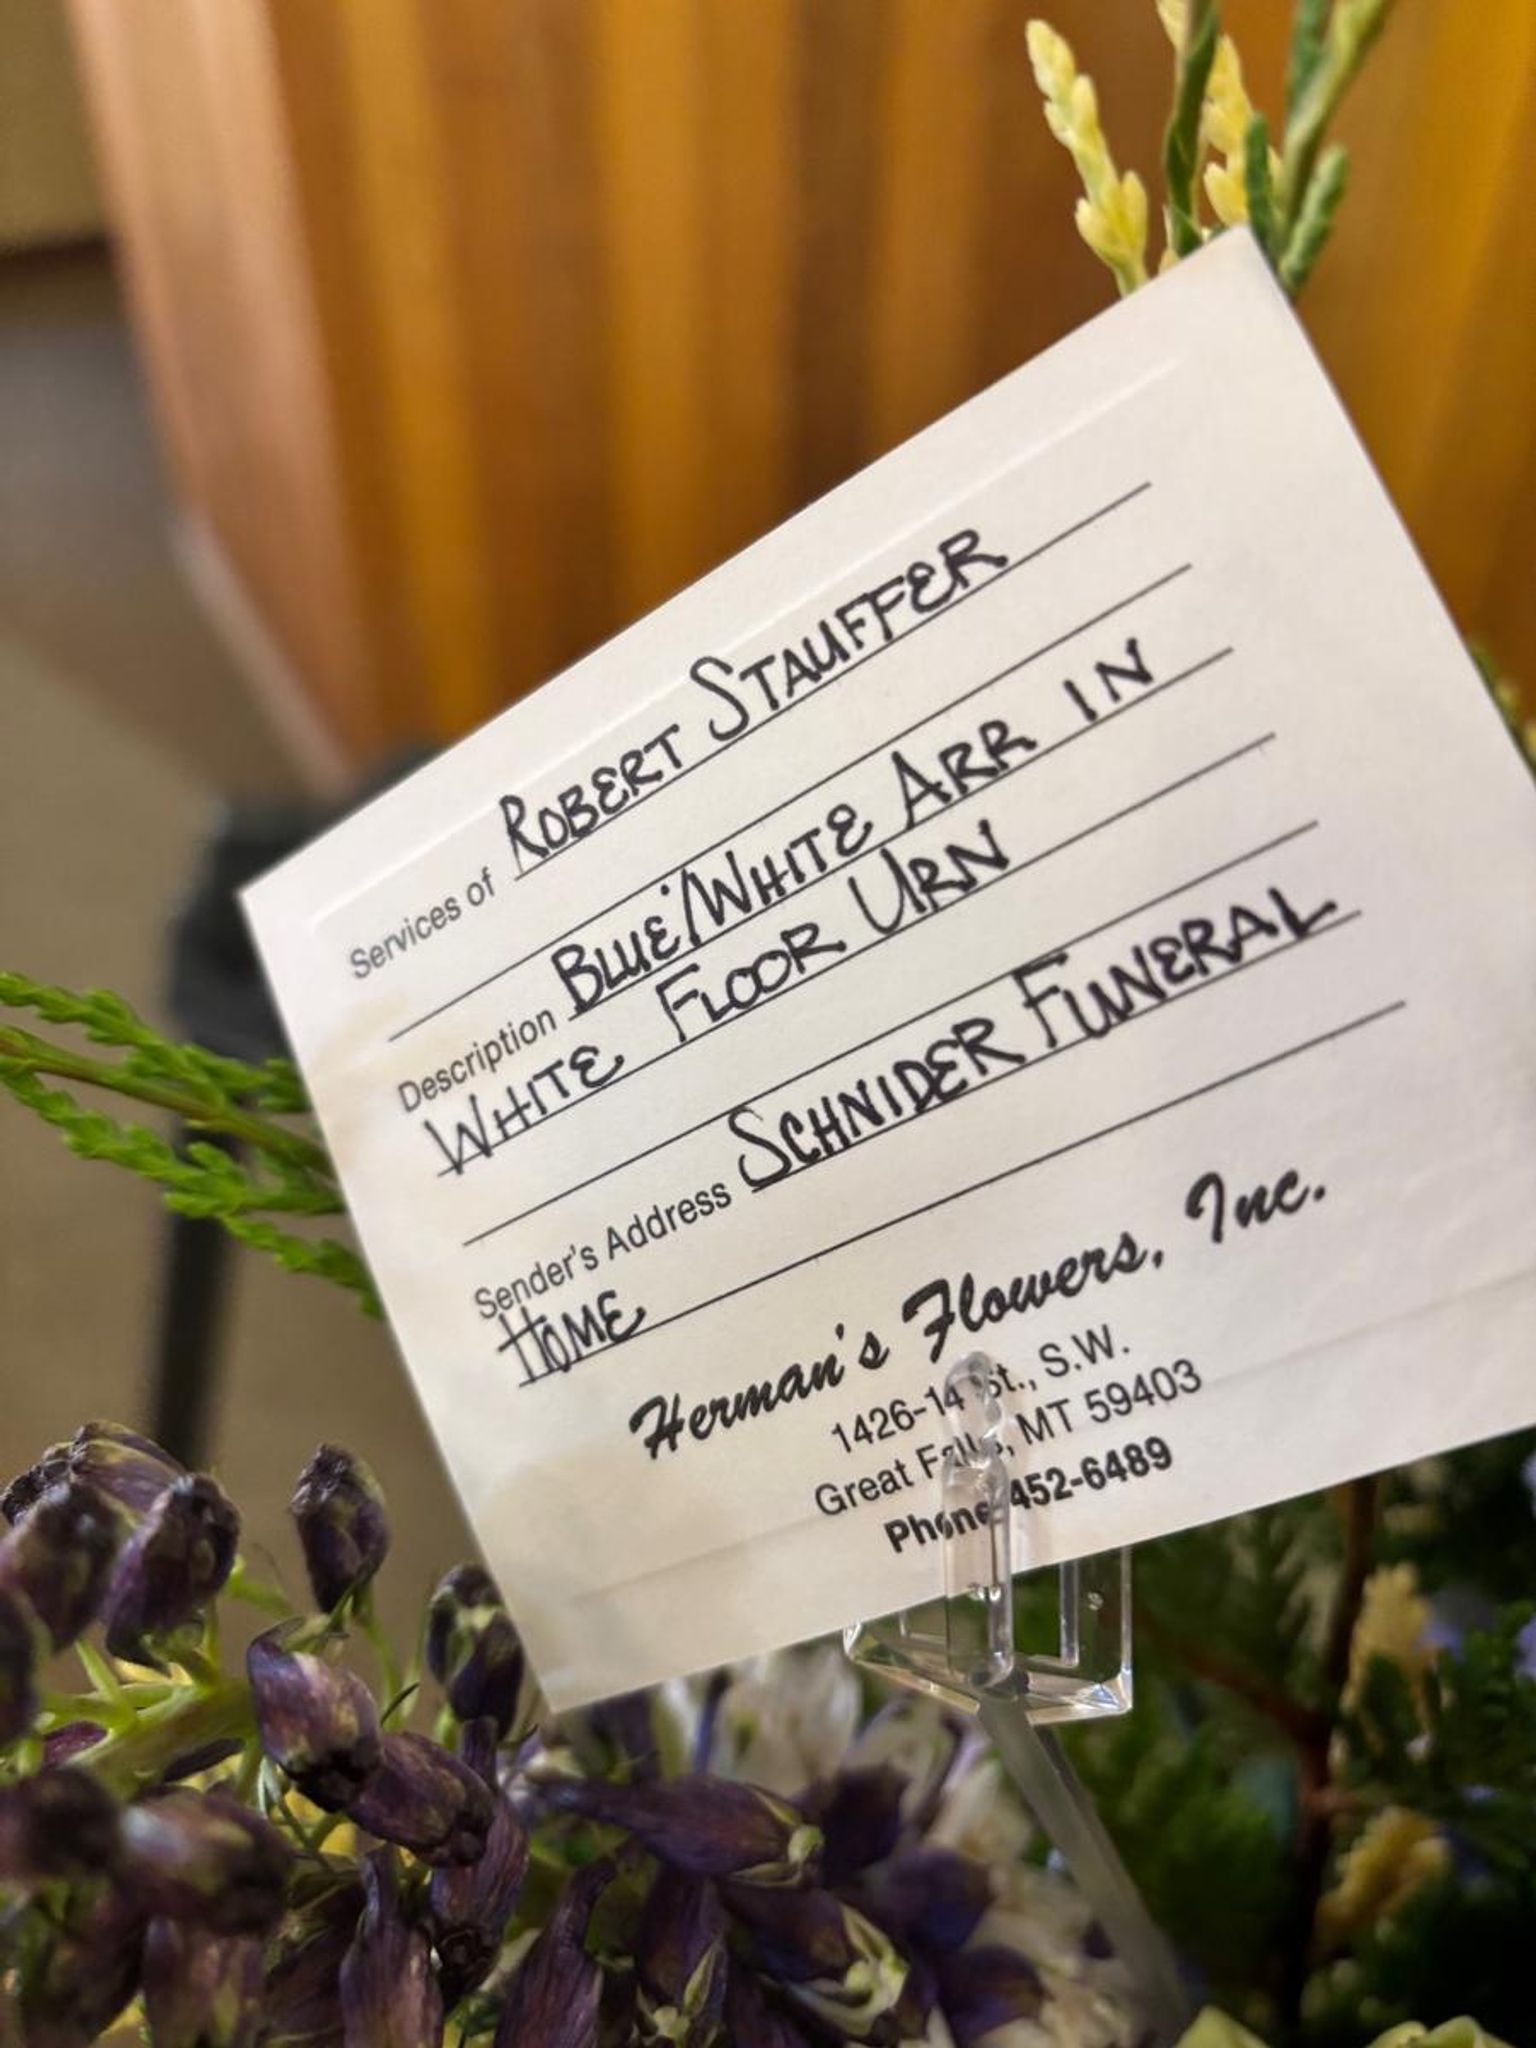 Services of ROBERT STAUFFER
Description BLUE/WHITE ARR IN
WHITE FLOOR URN
Sender's Address SCHNIDER FUNERAL
HOME
Herman's Flowers, Inc.
1426-14 St., S.W.
Great Falls, MT 59403
Phone 452-6489